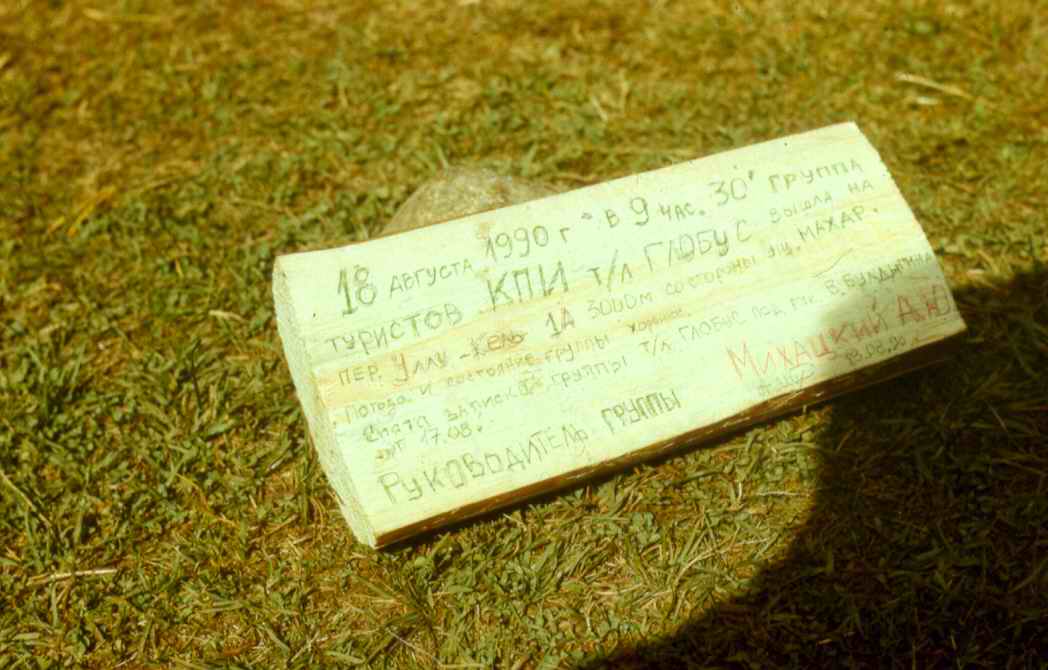 18 АВГУСТА 1990 г В 9 ЧАС. 30' ГРУППА
ТУРИСТОВ КПИ Т/Л ГЛОБУС ВЫШЛА НА
ПЕР. Уллу-Кель 1А 3000м со стороны ущ. МАХАР.
Погода и состояние группы хорошее.
Снята записка группы т/л ГЛОБУС под рук.
от 17.08.
РУКОВОДИТЕЛЬ ГРУППЫ МИХАЦКИЙ А.Ю
18.08.90